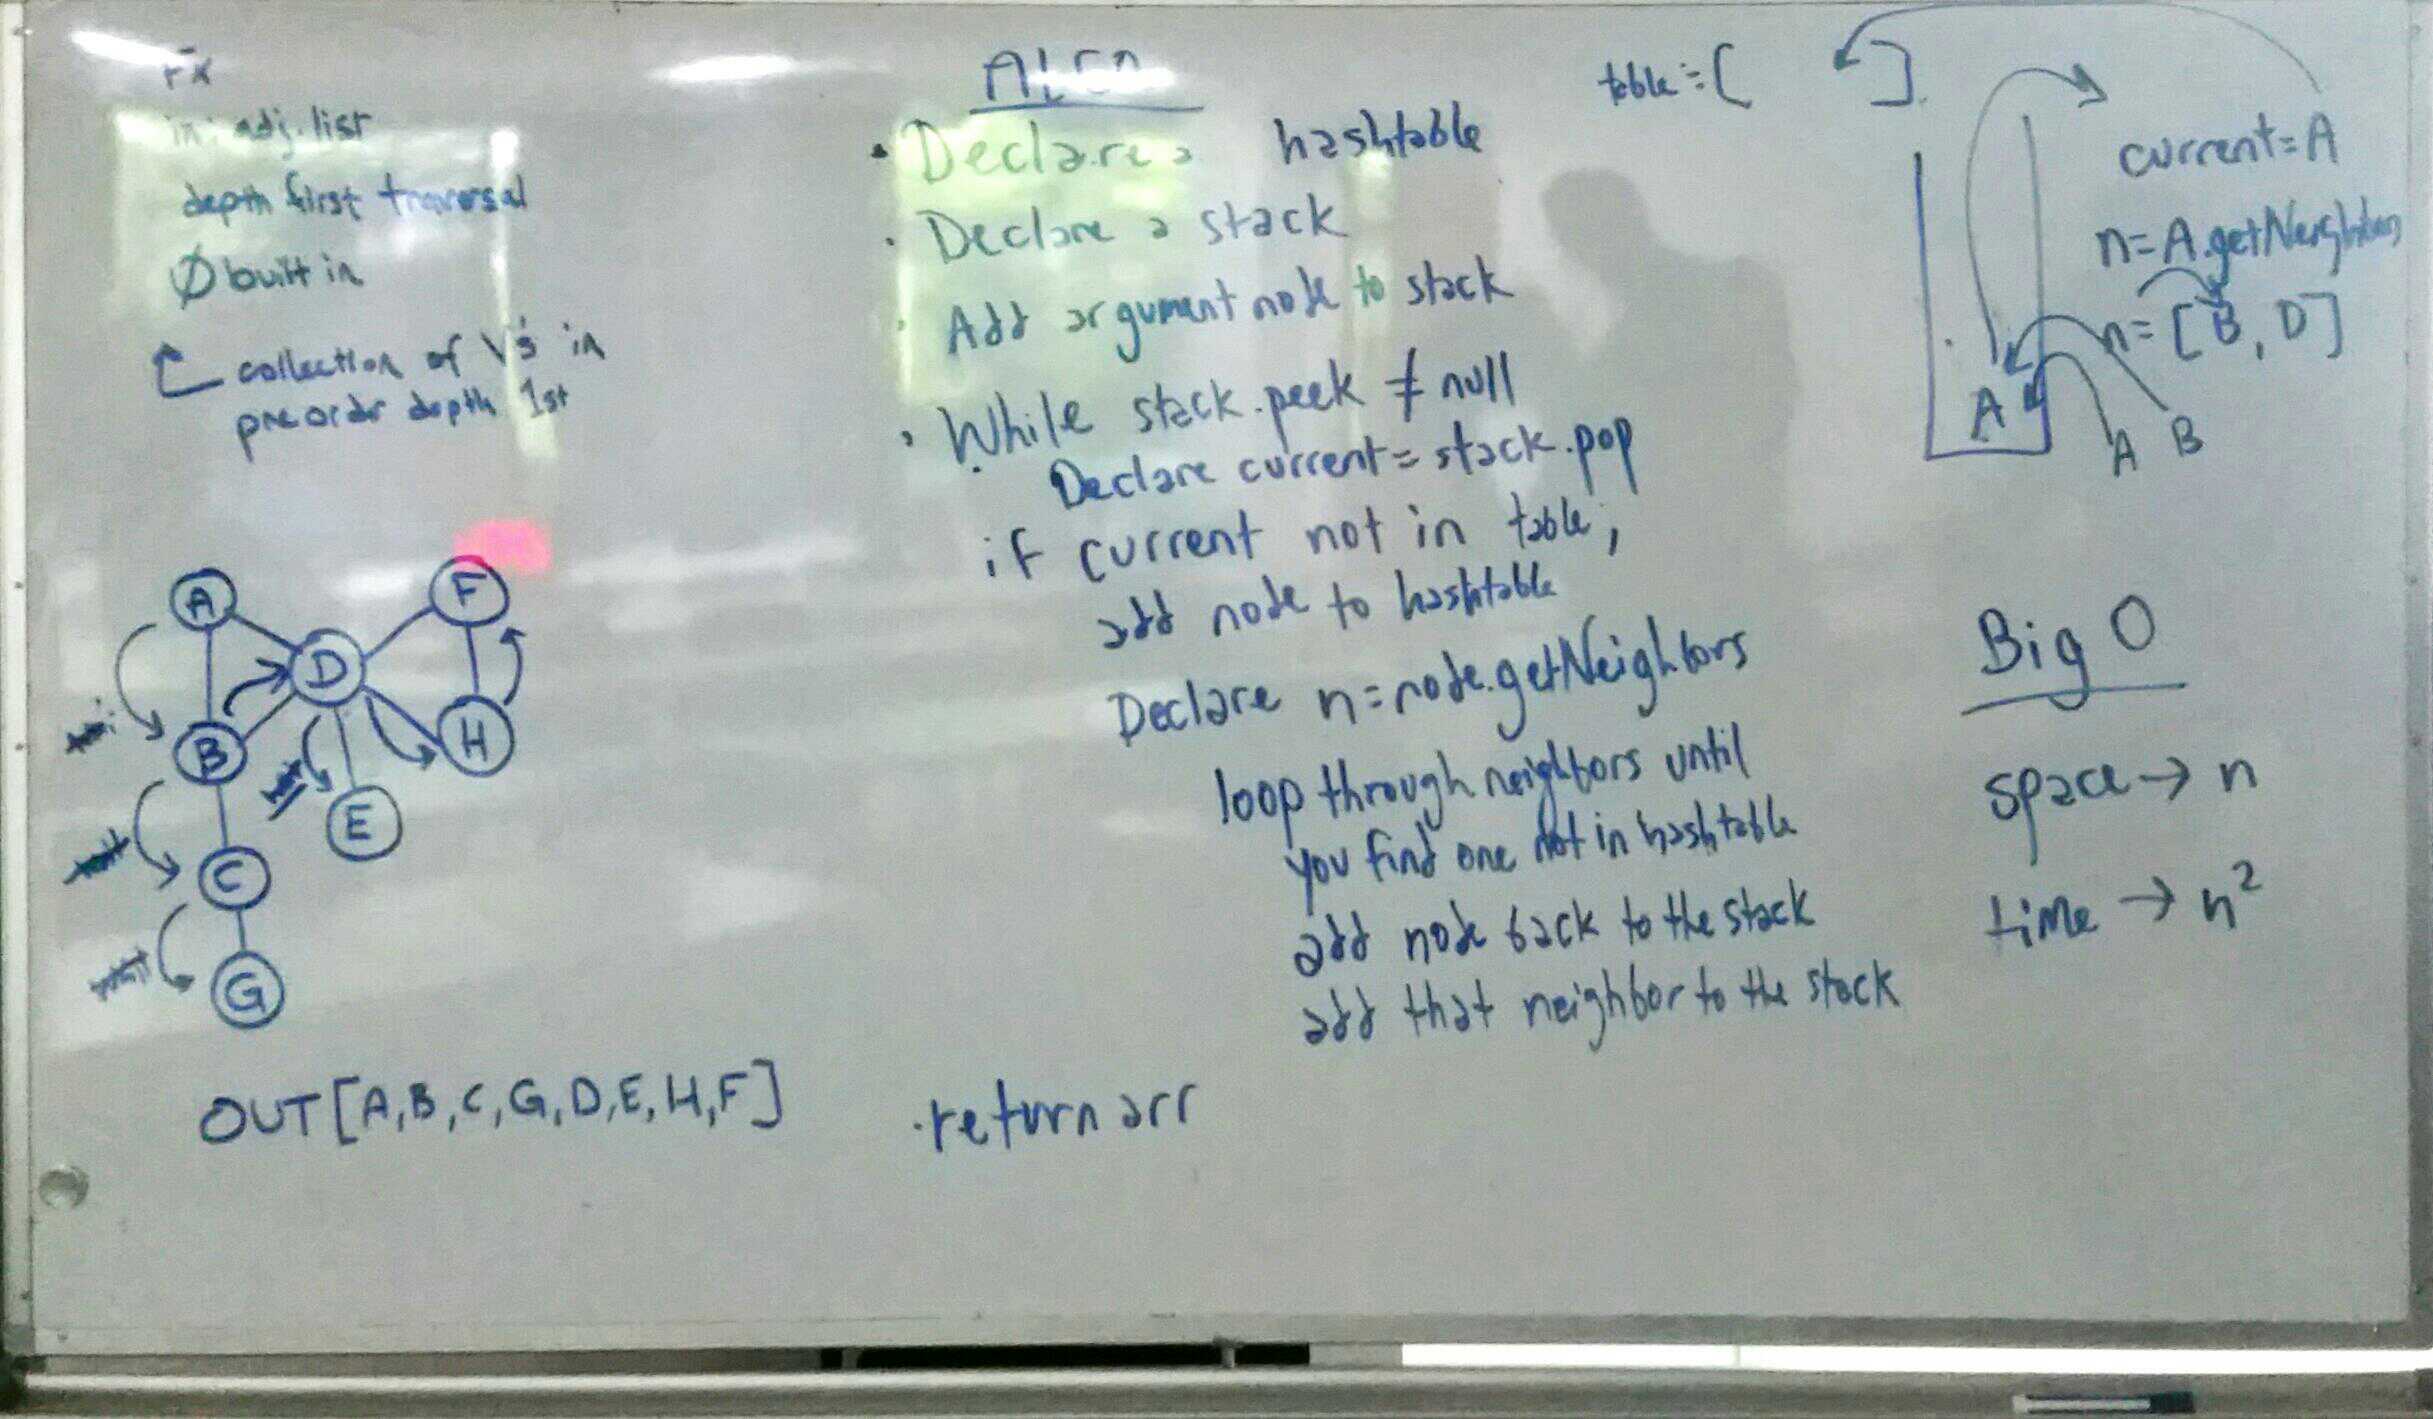 in: adj. list
depth first traversal
Ø built in
collection of V's in
preorder depth 1st
A
F
D
B
H
E
C
G
OUT [A,B,C,G,D,E,H,F]
ALGO
Declare a hashtable
Declare a stack
Add argument node to stack
While stack.peek ≠ null
Declare current = stack.pop
if current not in table,
add node to hashtable
Declare n=node.getNeighbors
loop through neighbors until
you find one not in hashtable
add node back to the stack
add that neighbor to the stack
return arr
table = [ ]
current=A
n=A.getNeighbors
n=[B,D]
A
A B
Big O
space → n
time → n²